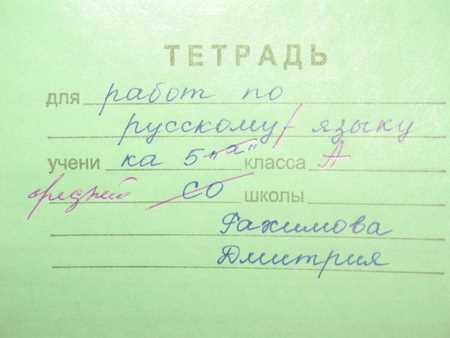 ТЕТРАДЬ
для работ по
русскому языку
учени ка 5 "х" класса А
средней СО школы
Рахимова
Дмитрия